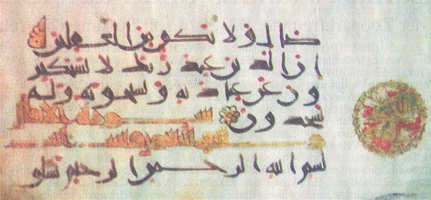 صال ولا تكن من الغفلين
ان الذين عند ربك لا يستكبر
ون عن عبادته ويسبحونه وله
يسجدون سورة الانفال
بسم الله الرحمن الرحيم يسلو